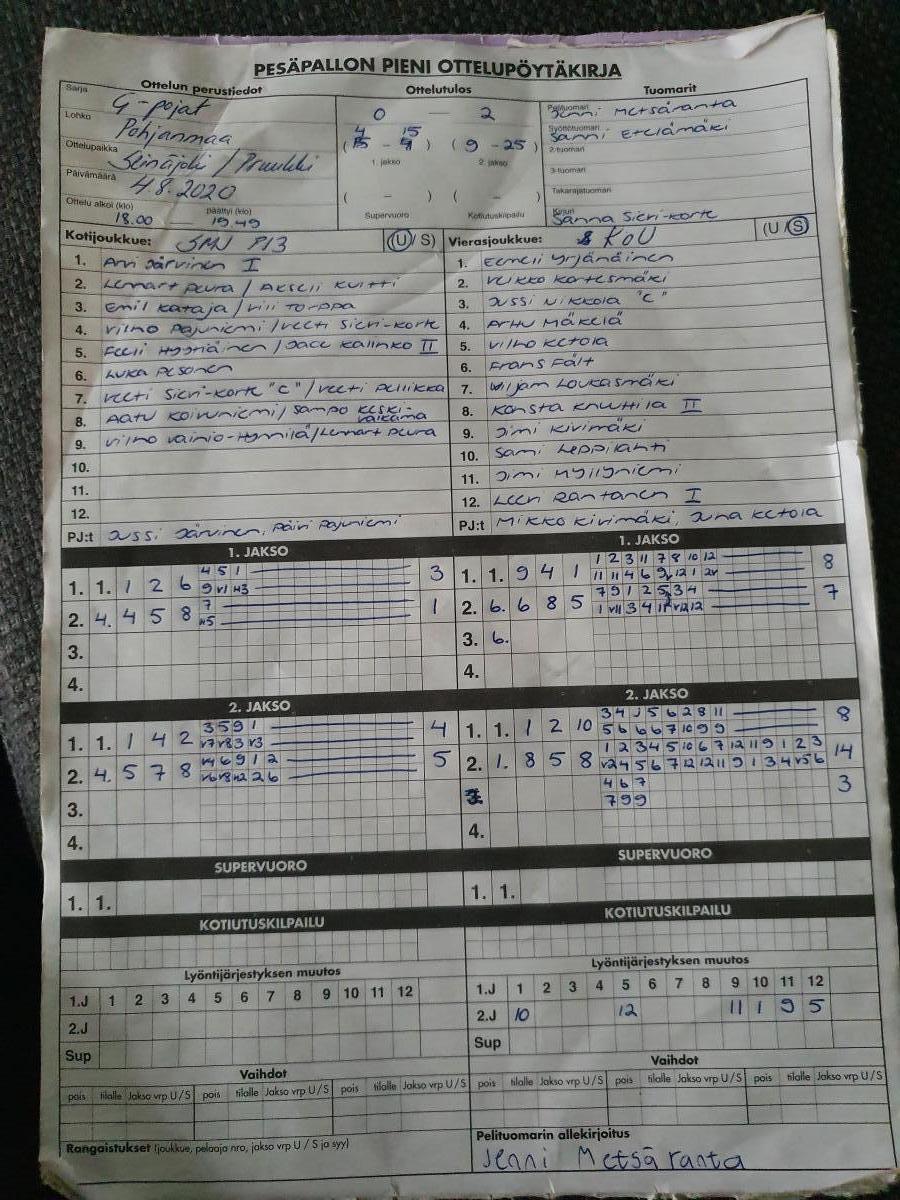 PESÄPALLON PIENI OTTELUPÖYTÄKIRJA
Ottelun perustiedot
Sarja G-pojat
Lohko Pohjanmaa
Ottelupaikka Seinäjoki / Pruukki
Päivämäärä 4.8.2020
Ottelu alkoi (klo) päättyi (klo)
18.00 — 19.49
Ottelutulos
0 — 2
4 15
( - ) (9 - 25)
1. jakso 2. jakso
( - ) ( - )
Supervuoro Kotiutuskilpailu
Tuomarit
Pelituomari Jenni Metsäranta
Syöttötuomari Sanni Etelämäki
2-tuomari
3-tuomari
Takarajatuomari
Kirjuri Sanna Sieri-Korte
Kotijoukkue: SMJ P13 (U / S)
1. Arvi Järvinen I
2. Lennart Peura / Akseli Kuitti
3. Emil Kataja / Vili Torppa
4. Vilho Pajuniemi / Veeti Sieri-Korte
5. Eeli Hyyriäinen / Jace Kalinko II
6. Luka Pesonen
7. Veeti Sieri-Korte "C" / Veeti Pellikka
8. Aatu Koivuniemi / Sampo Keski-Vaikama
9. Vilho Vainio-Hynnilä / Lennart Peura
10.
11.
12.
PJ:t Jussi Järvinen, Päivi Pajuniemi
Vierasjoukkue: KoU (U / S)
1. Eemeli Yrjänäinen
2. Veikko Kortesmäki
3. Jussi Nikkola "C"
4. Arttu Mäkelä
5. Vilho Ketola
6. Frans Fält
7. Wiljam Loukasmäki
8. Konsta Knuuttila II
9. Jimi Kivimäki
10. Sami Leppilahti
11. Jimi Myllyniemi
12. Leen Rantanen I
PJ:t Mikko Kivimäki, Juha Ketola
1. JAKSO
4 5 1
1. 1. 1 2 6 3
9 v1 H3
7
2. 4. 4 5 8 1
H5
3.
4.
1. JAKSO
1 2 3 11 7 8 10 12
1. 1. 9 4 1 8
2. 6. 6 8 5 7
3. 6.
4.
2. JAKSO
3 5 9 1
1. 1. 1 4 2 4
v7 v8 3 v3
v4 6 9 1 2
2. 4. 5 7 8 5
v6 v8 v2 2 6
3.
4.
2. JAKSO
3 4 5 6 2 8 11
1. 1. 1 2 10 8
5 6 6 6 7 10 9 9
1 2 3 4 5 10 6 7 12 11 9 1 2 3
2. 1. 8 5 8 14
v2 4 5 6 7 12 12 11 9 1 3 4 v5 6
4 6 7
3
7 9 9
4.
SUPERVUORO
1. 1.
SUPERVUORO
1. 1.
KOTIUTUSKILPAILU
KOTIUTUSKILPAILU
Lyöntijärjestyksen muutos
1.J 1 2 3 4 5 6 7 8 9 10 11 12
2.J
Sup
Lyöntijärjestyksen muutos
1.J 1 2 3 4 5 6 7 8 9 10 11 12
2.J 10 12 11 1 9 5
Sup
Vaihdot
pois tilalle Jakso vrp U / S pois tilalle Jakso vrp U / S pois tilalle Jakso vrp U / S
Vaihdot
pois tilalle Jakso vrp U / S pois tilalle Jakso vrp U / S pois tilalle Jakso vrp U / S
Rangaistukset (joukkue, pelaaja nro, jakso vrp U / S ja syy)
Pelituomarin allekirjoitus
Jenni Metsäranta